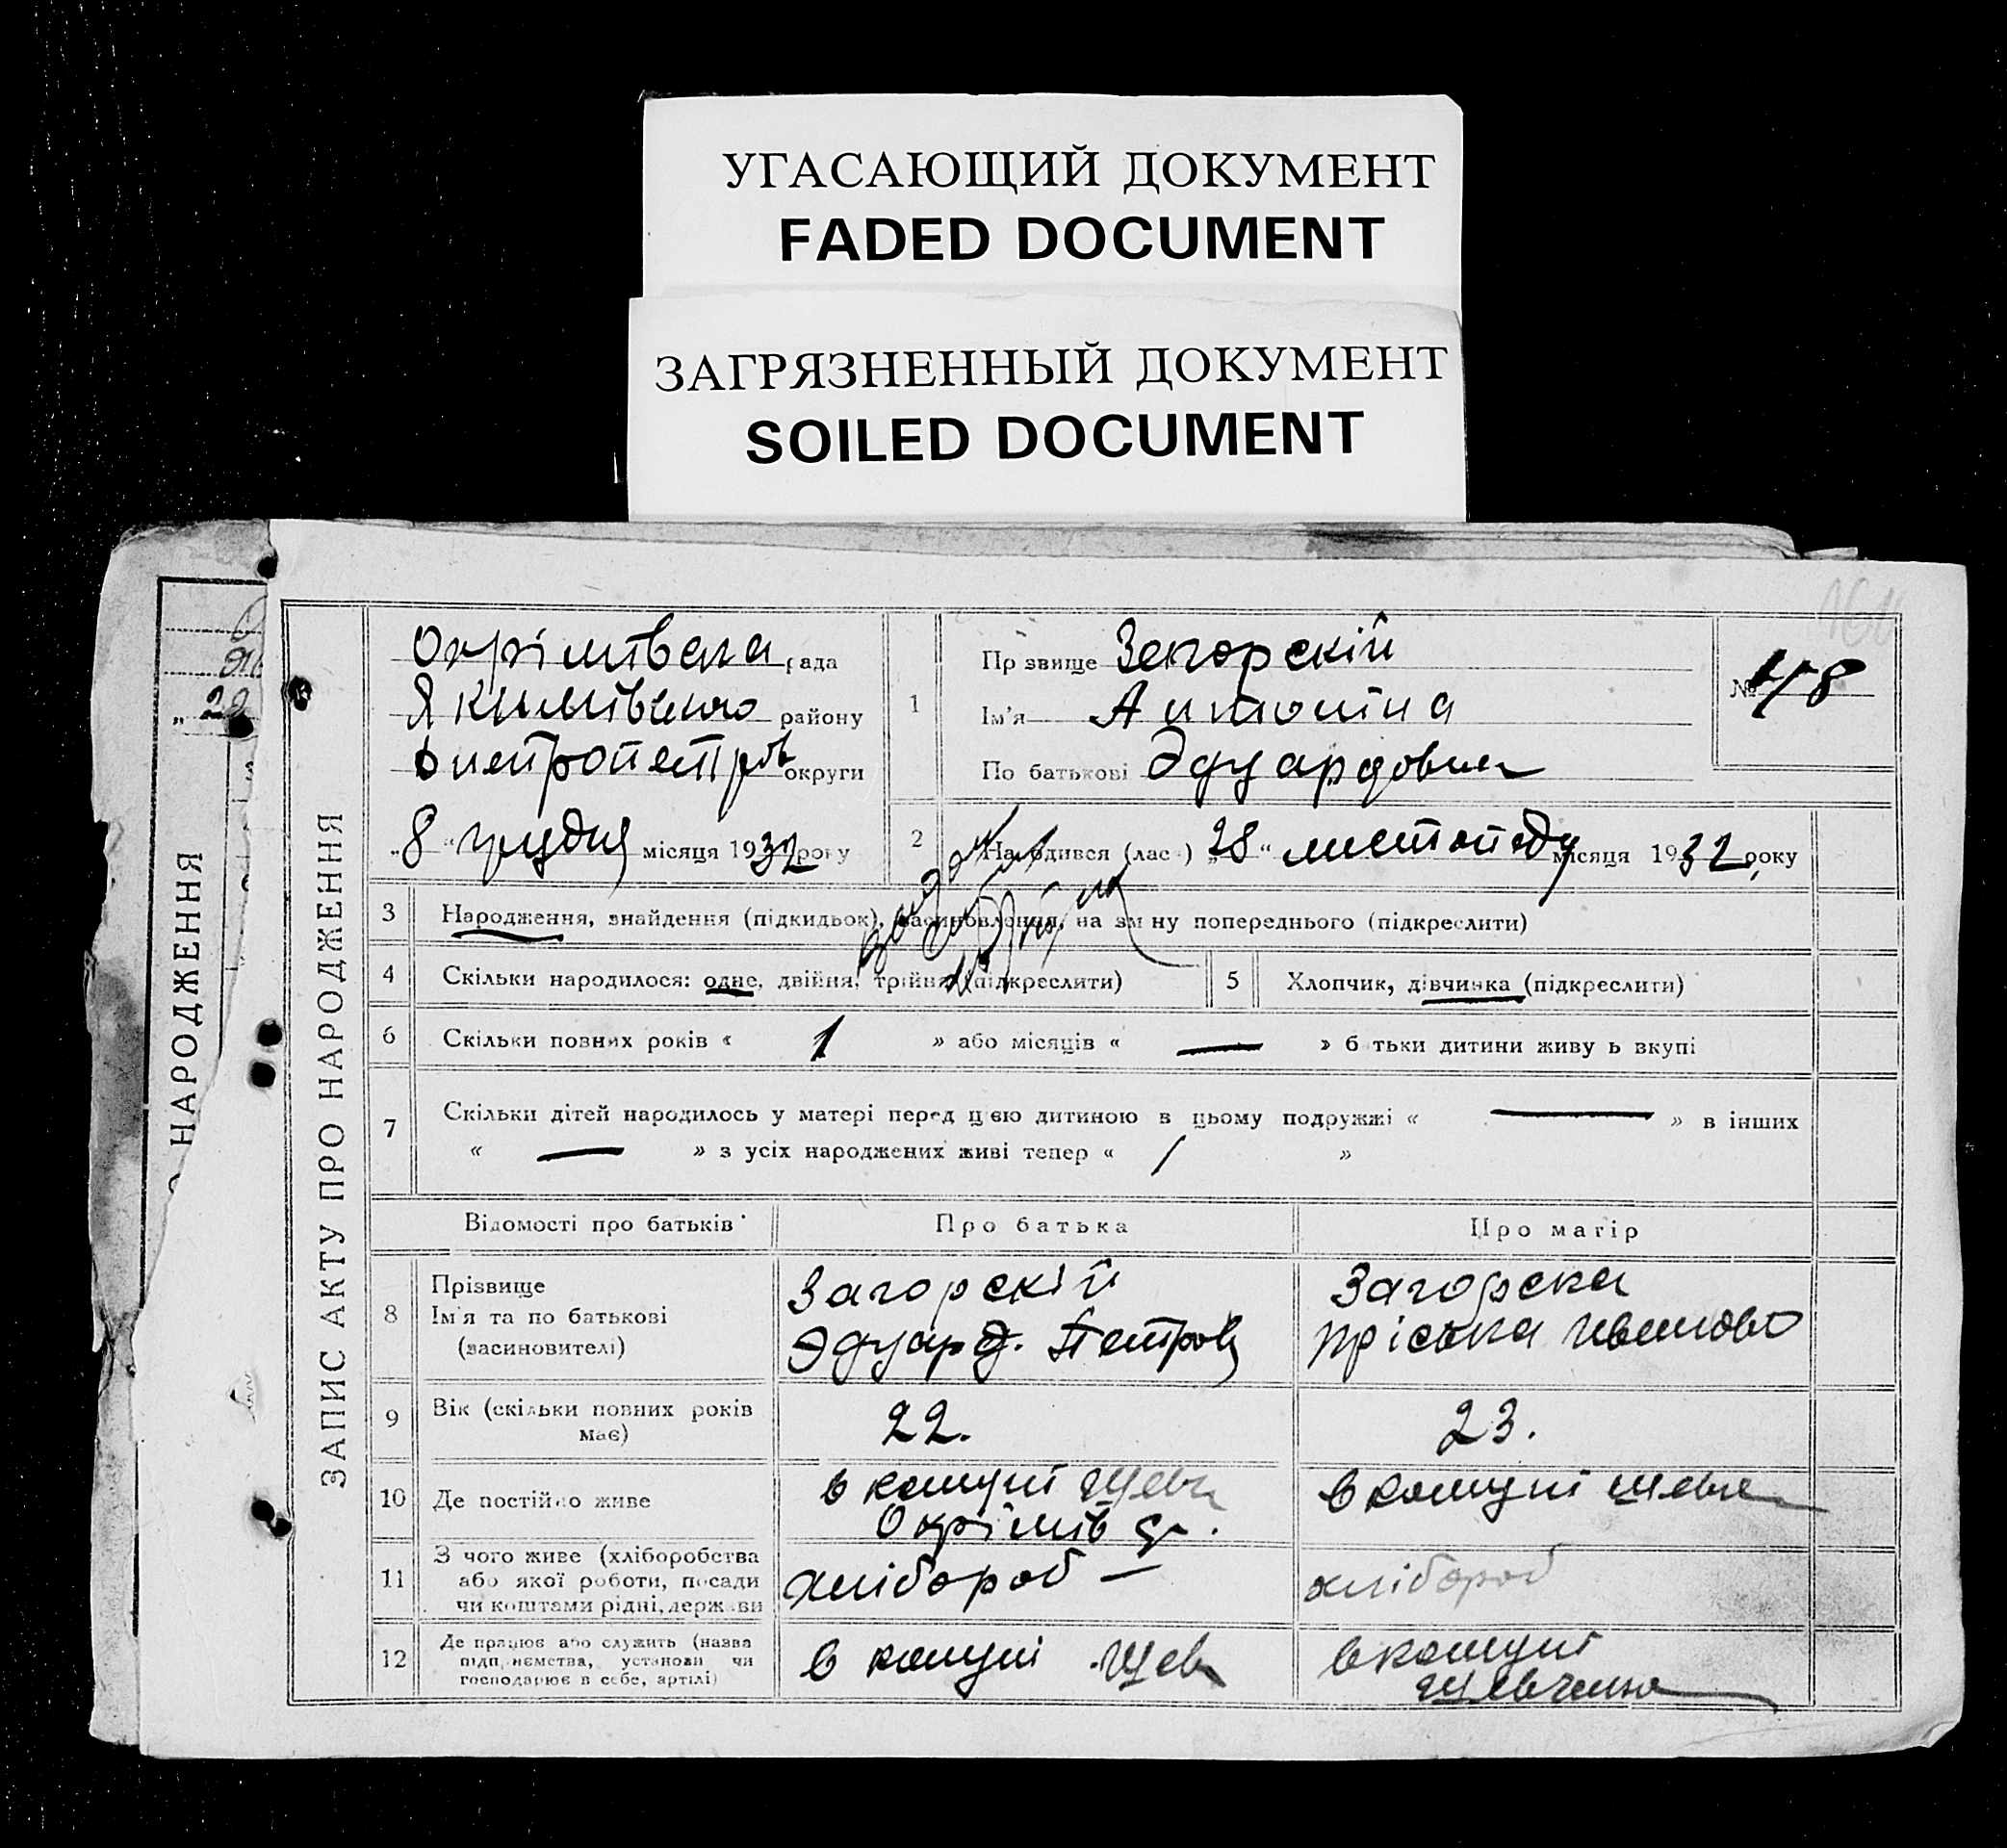 УГАСАЮЩИЙ ДОКУМЕНТ
FADED DOCUMENT
ЗАГРЯЗНЕННЫЙ ДОКУМЕНТ
SOILED DOCUMENT
НАРОДЖЕННЯ
ЗАПИС АКТУ ПРО НАРОДЖЕННЯ
рада
району
Днепропетров округи
„8“ грудня місяця 1932 року
1
Пр звище Загорскій
Ім'я Антоніна
По батькові Эдуардовна
№ 48
2 На одився (лас ) „28“ листопаду місяця 1932 року
3 Народження, знайдення (підкидьок), засиновлення, на зм ну попереднього (підкреслити)
4 Скільки народилося: одне, двійня, трійня (підкреслити)
5 Хлопчик, дівчинка (підкреслити)
6 Скільки повних років « 1 » або місяців « — » б тьки дитини живу ь вкупі
7 Скільки дітей народилось у матері перед цією дитиною в цьому подружжі « — » в інших
« — » з усіх народжених живі тепер « 1 »
Відомості про батьків
Про батька
Про матір
8 Прізвище
Ім'я та по батькові
(засиновителі)
Загорскій
Эдуард. Петров
Загорска
Пріська Иванова
9 Вік (скільки повних років має)
22.
23.
10 Де постійно живе
в комуні Шевч
Окрімів
в комуні Шевче
11 З чого живе (хліборобства
або якої роботи, посади
чи коштами рідні, держави
хлібороб —
хлібороб
12 Де працює або служить (назва
підприємства, установи чи
господарює в себе, артілі)
в комуні Шев
в комуні
Шевченко